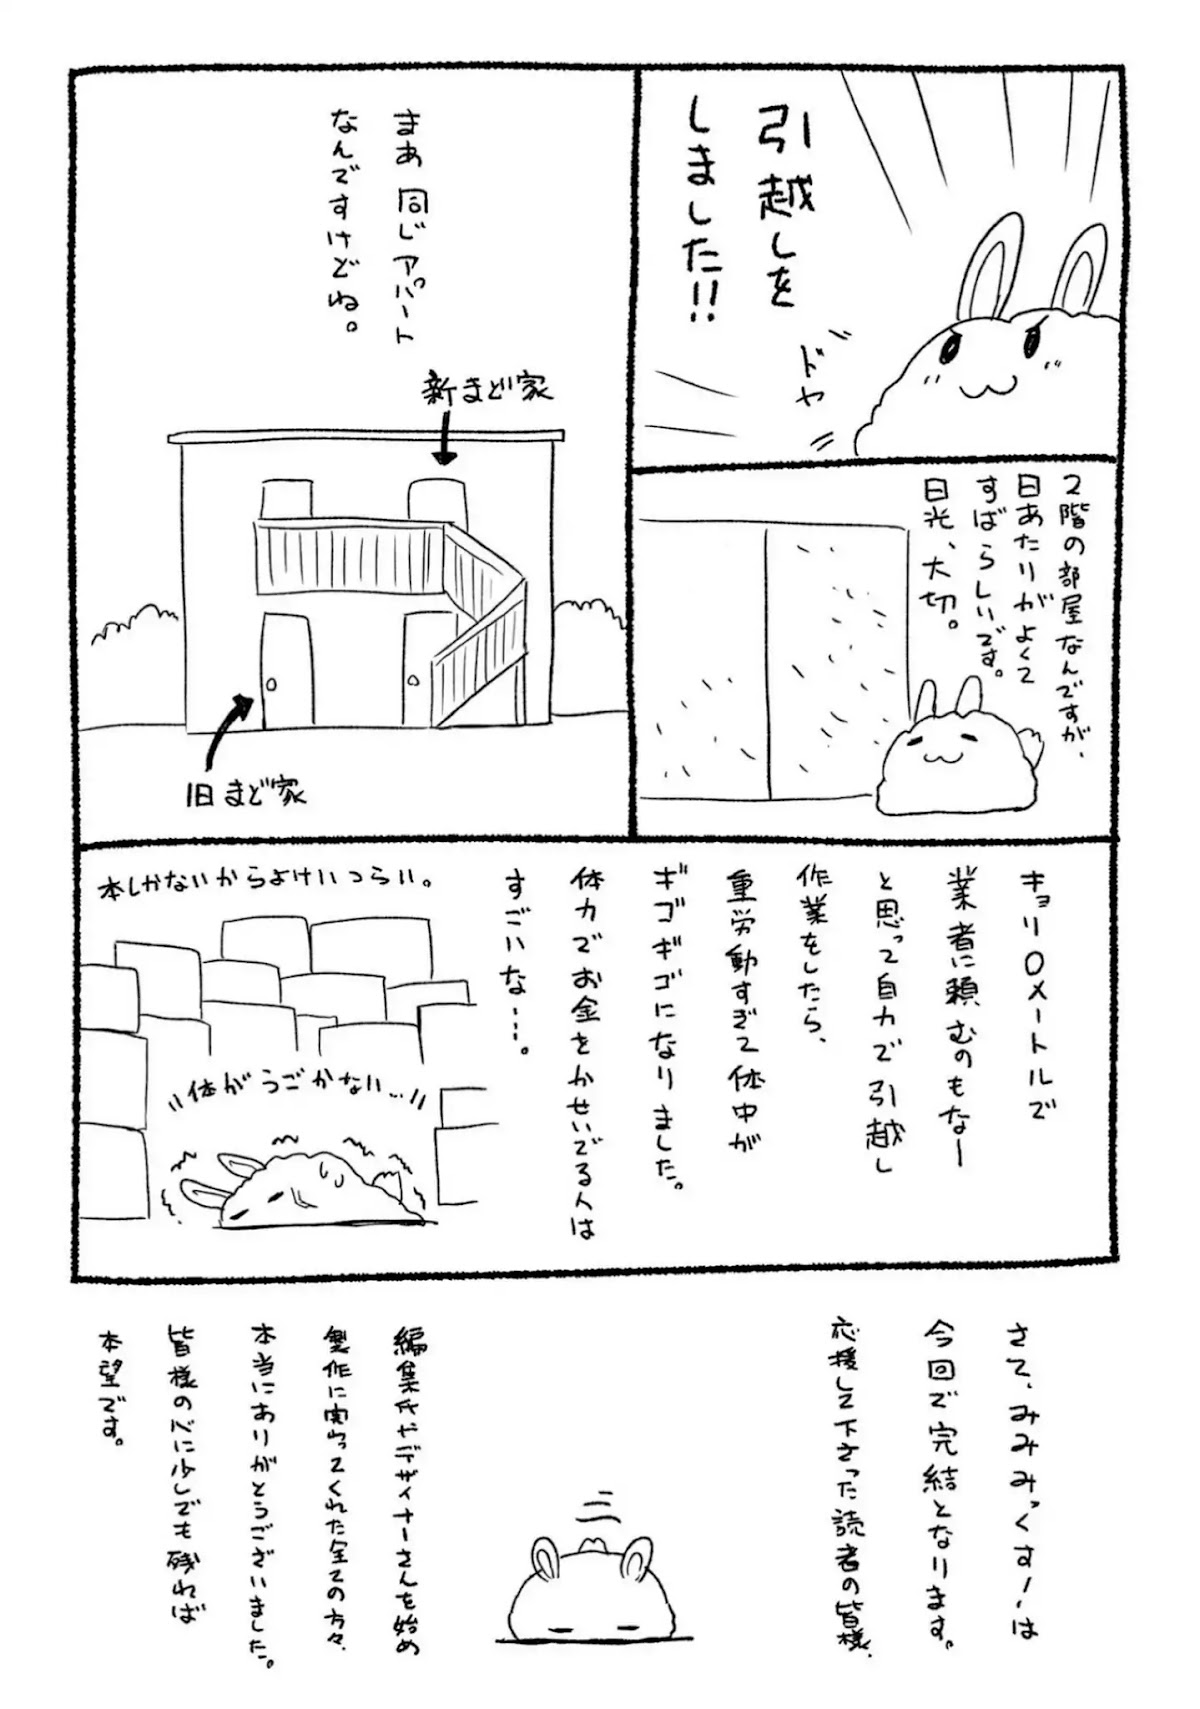 引越しを
しました!!
ドヤ
2階の部屋なんですが、
日あたりがよくて
すばらしいです。
日光、大切。
まあ 同じアパート
なんですけどね。
新まど家
旧まど家
キョリ0メートルで
業者に頼むのもなー
と思って自力で引越し
作業をしたら、
重労働すぎて体中が
ギゴギゴになりました。
体力でお金をかせいでる人は
すごいな…。
本しかないからよけいつらい。
体がうごかない…
さて、みみみっくす!は
今回で完結となります。
応援して下さった読者の皆様、
編集氏やデザイナーさんを始め
製作に関わってくれた全ての方々、
本当にありがとうございました。
皆様の心に少しでも残れば
本望です。